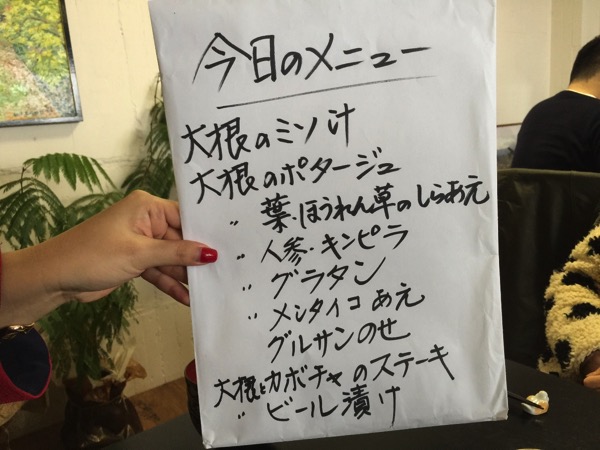 今日のメニュー
大根のミソ汁
大根のポタージュ
〃 葉・ほうれん草のしらあえ
〃 人参・キンピラ
〃 グラタン
〃 メンタイコあえ
グルサンのせ
大根とカボチャのステーキ
〃 ビール漬け